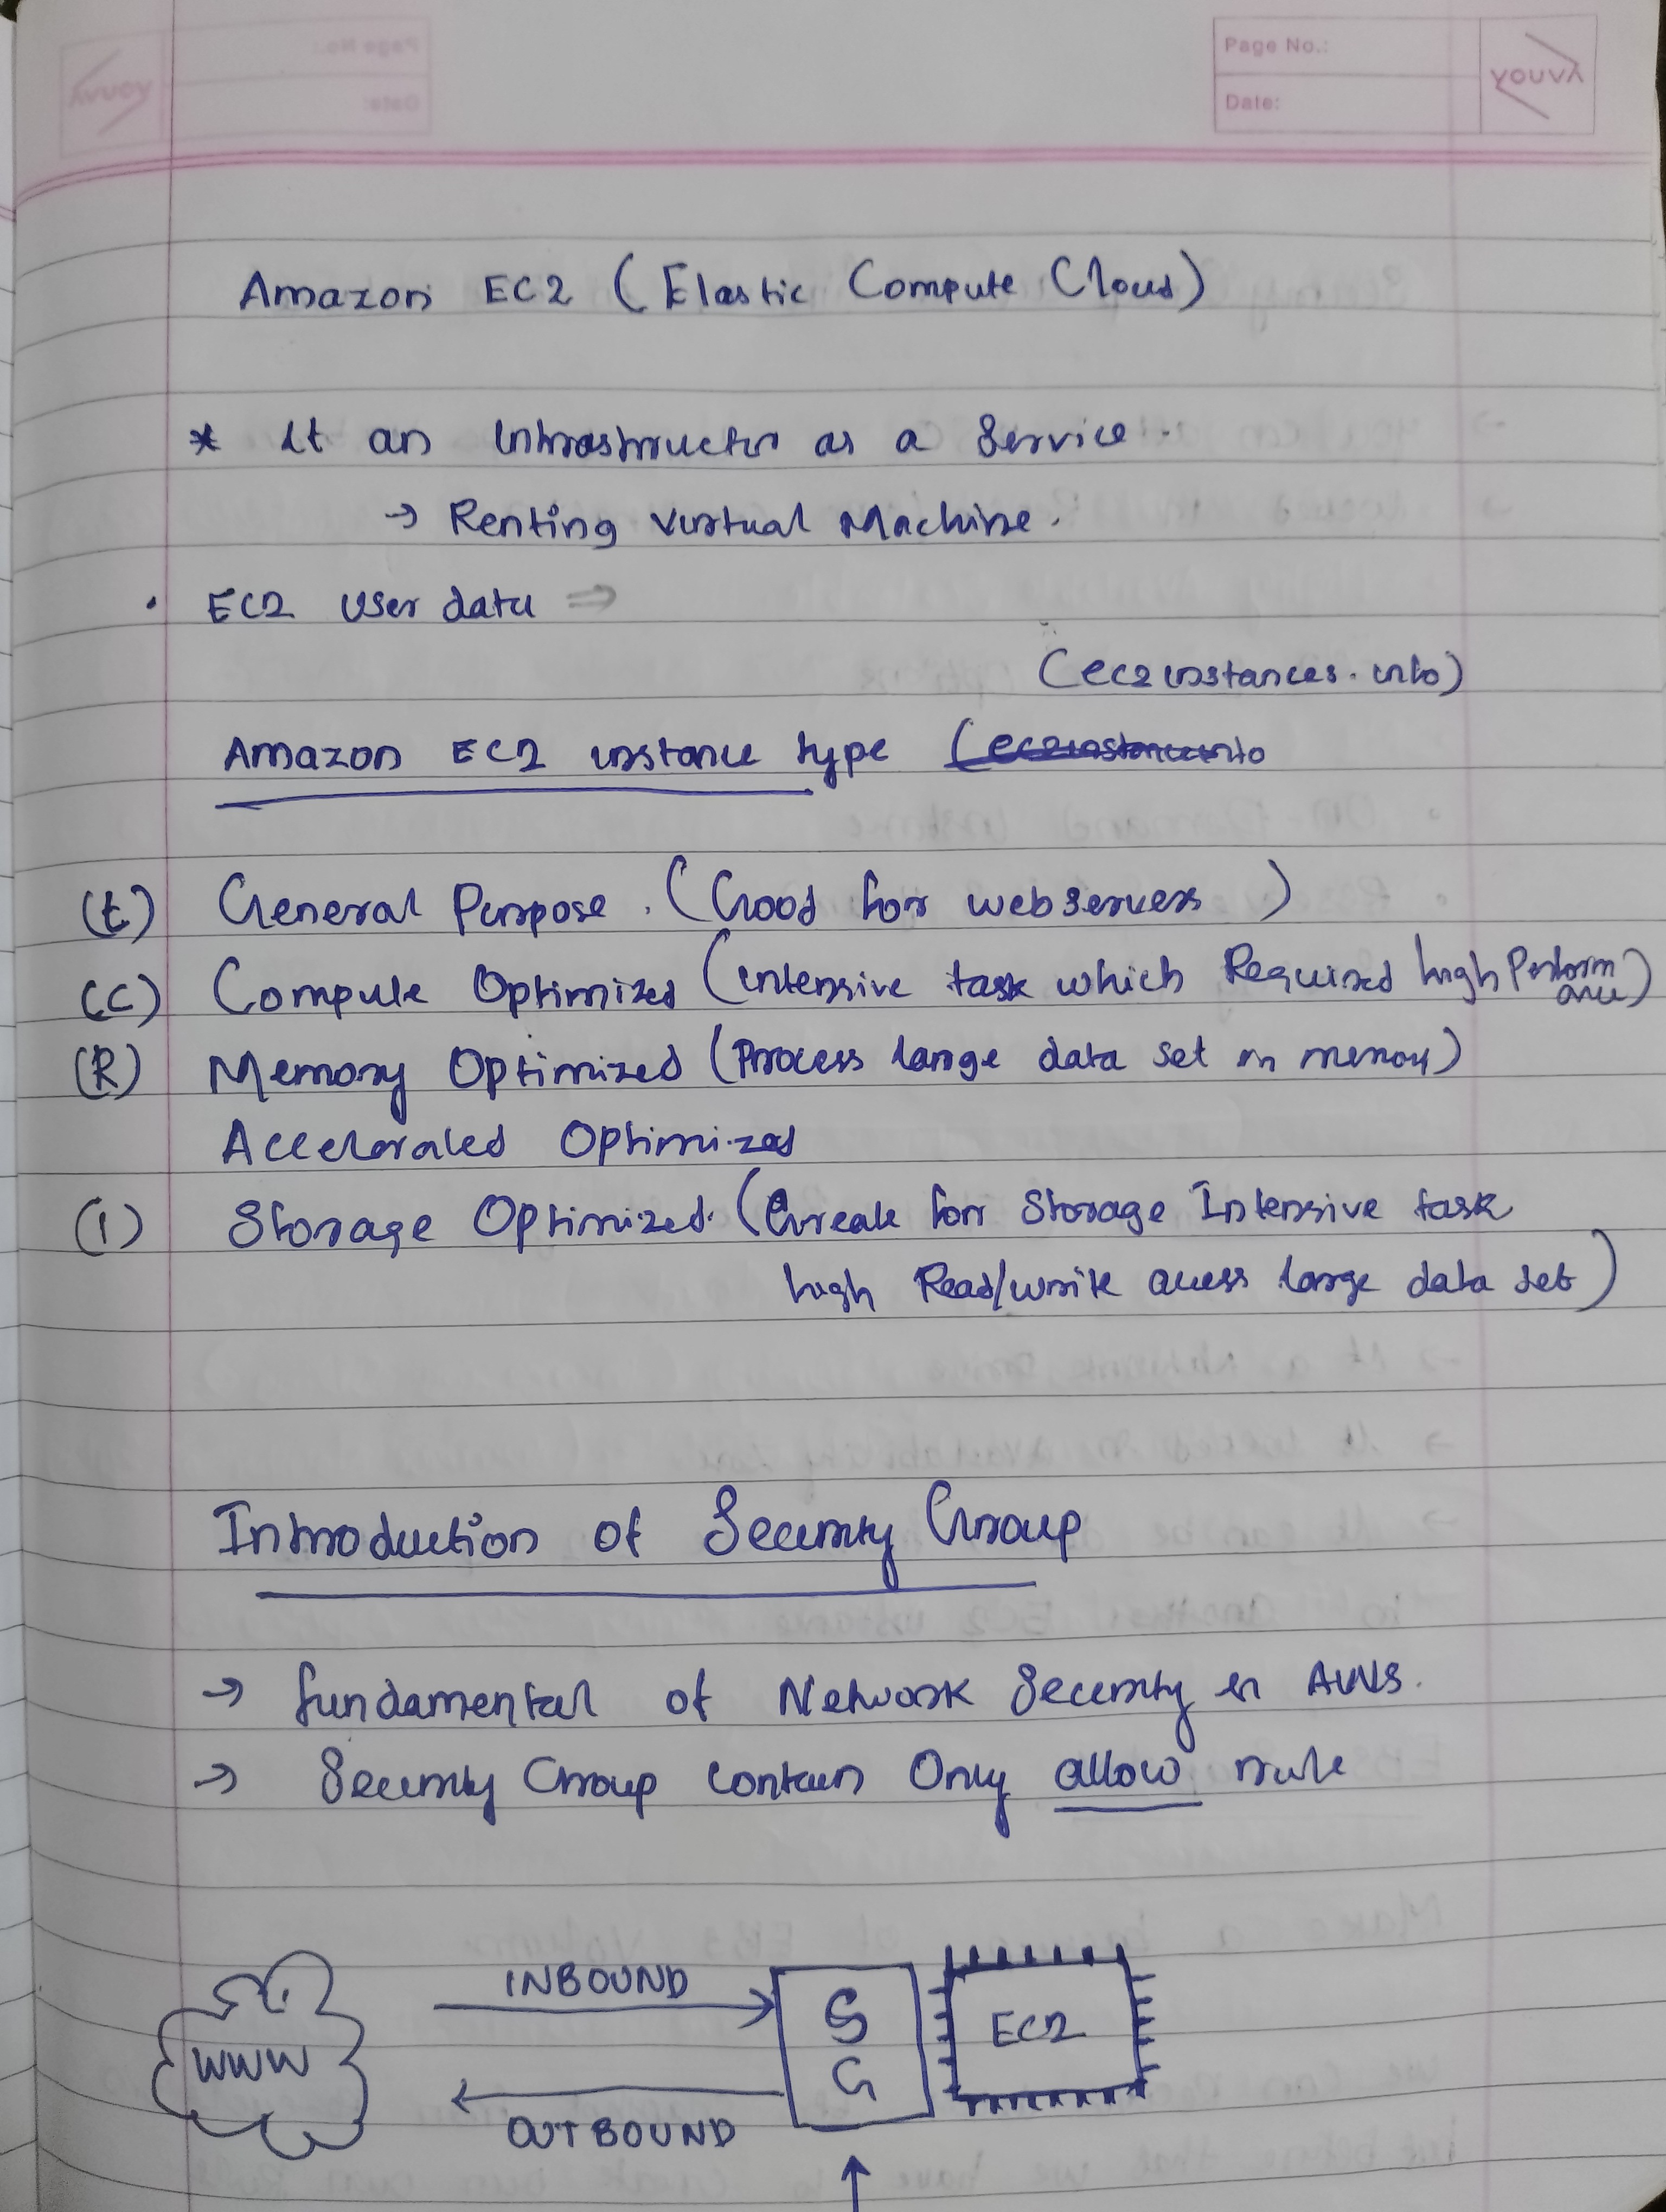 Page No.:
Date:
YOUVA
Amazon EC2 (Elastic Compute Cloud)
* It an Infrastructur as a Service.
→ Renting Virtual Machine.
• EC2 User data ⇒
(ec2instances.info)
Amazon EC2 instance type (ec2instanceinfo
(t) General Purpose. (Good for webservers)
(C) Compute Optimized (intensive task which Required high Performance)
(R) Memory Optimized (Process large data set in memory)
Accelorated Optimized
(I) Storage Optimized. (Great for Storage Intensive task
high Read/write acess large data set)
Introduction of Security Group
→ fundamental of Network Security in AWS.
→ Security Group contain Only allow rule
INBOUND
WWW
S
G
EC2
OUTBOUND